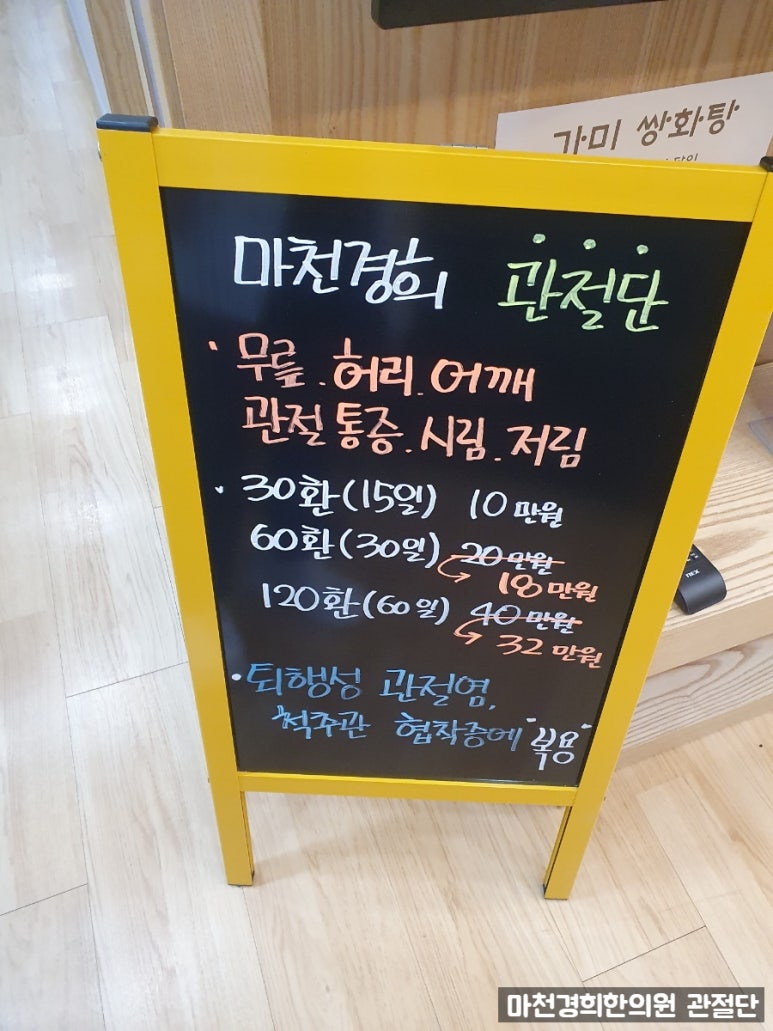 가미 쌍화탕
마천경희 관절단
· 무릎. 허리. 어깨
관절통증. 시림. 저림
· 30환(15일) 10만원
60환(30일) 20만원
18만원
120환(60일) 40만원
32만원
· 퇴행성 관절염,
척주관 협착증에 "복용"
마천경희한의원 관절단